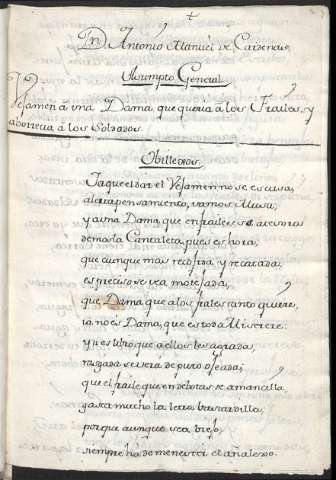 Dn. Antonio Manuel de Cardenas
Asumpto General
Vejamen à una Dama que queria à los Frailes, y
aborrecia à los Soldados.
Obillejos.
Ia que el dar el Vejamen no se escusa,
alerta pensamiento, vamos Musa,
y a una Dama, que en frailes se
demosla Cantaleta, pues es hora,
que aunque mas recojida, y recatada,
es preciso se vea motejada,
que Dama que a los frailes tanto quiere,
ia no es Dama, que es toda Miserere:
y si es libro, que a ellos les agrada,
rasgada se verà de puro ojeada;
que el fraile que en devotas se
gasta mucho la letra bastardilla,
porque aunque sea viejo,
siempre ha de menester el añalejo.